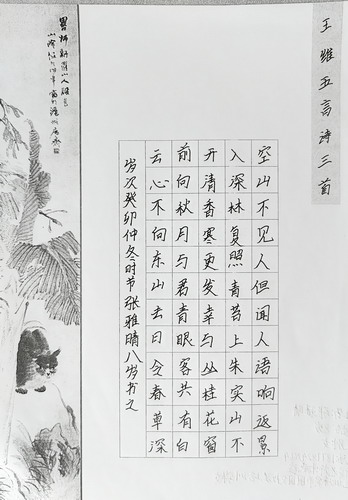 王维五言诗三首
空山不见人但闻人语响返景
入深林复照青苔上朱实山不
开清香寒更发幸与丛桂花窗
前向秋月与君青眼客共有白
云心不向东山去日令春草深
岁次癸卯仲冬时节张雅晴八岁书之
新羅山人